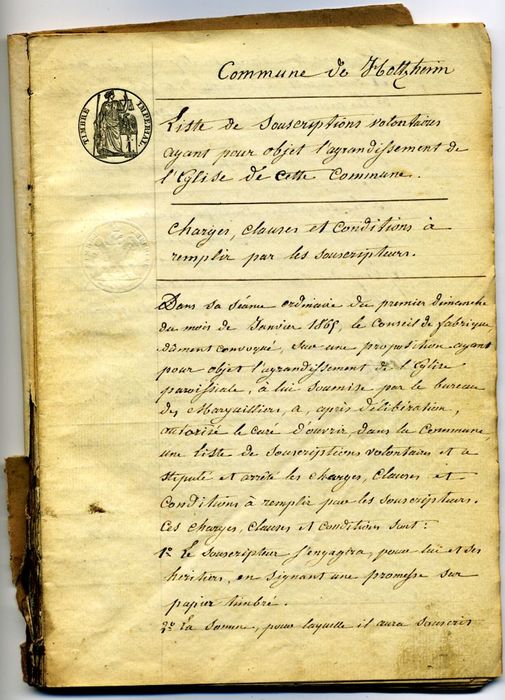 TIMBRE IMPÉRIAL
Commune de Holtzheim
Liste de Souscriptions volontaires
ayant pour objet l'agrandissement de
l'Eglise de cette Commune.
Charges, clauses et conditions à
remplir par les souscripteurs.
Dans sa séance ordinaire du premier dimanche
du mois de Janvier 1865, le Conseil de fabrique,
dûment convoqué, sur une proposition ayant
pour objet l'agrandissement de l'Eglise
paroissiale, à lui soumise par le bureau
des Marguilliers, a, après délibération,
autorisé le curé d'ouvrir, dans la Commune,
une liste de souscriptions volontaires et a
stipulé et arrêté les charges, clauses et
conditions à remplir par les souscripteurs.
Ces charges, clauses et conditions sont:
1º Le souscripteur s'engagera, pour lui et ses
héritiers, en signant une promesse sur
papier timbré.
2º La somme, pour laquelle il aura souscrit